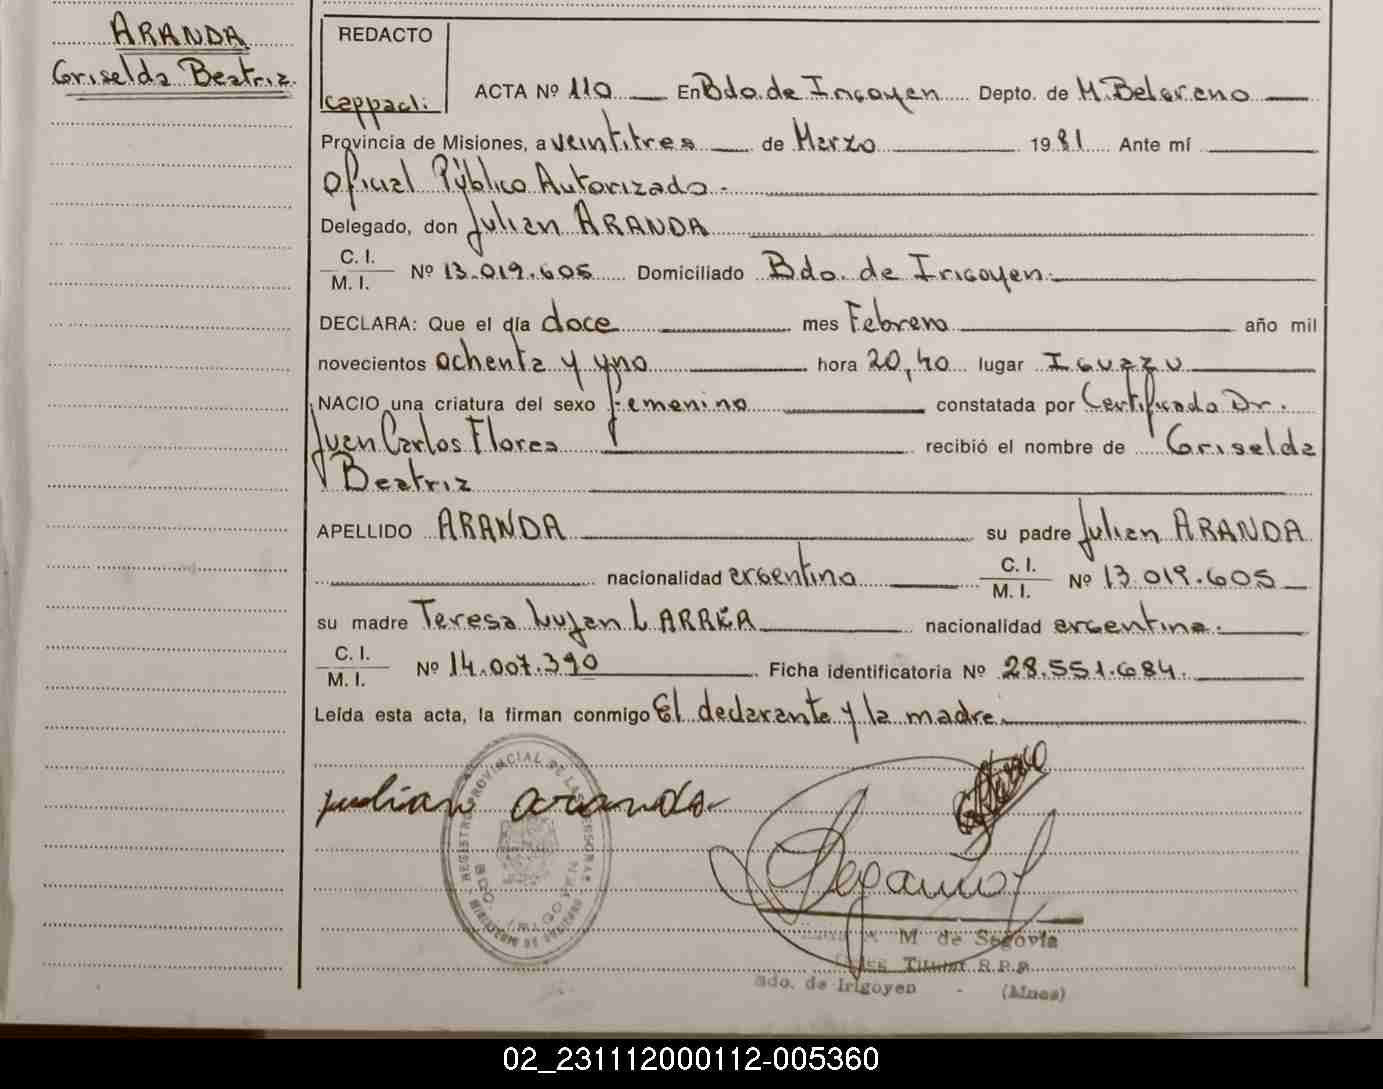 ARANDA
Griselda Beatriz
REDACTO
ACTA Nº 110 En Bdo. de Irigoyen Depto. de M. Belgrano
Provincia de Misiones, a veintitres de Marzo 1981 Ante mí
Oficial Público Autorizado.
Delegado, don Julian ARANDA
C. I.
M. I. Nº 13.019.605 Domiciliado Bdo. de Irigoyen.
DECLARA: Que el día doce mes Febrero año mil
novecientos ochenta y uno hora 20,40 lugar Iguazu
NACIO una criatura del sexo femenino constatada por Certificado Dr.
Juan Carlos Flores recibió el nombre de Griselda
Beatriz
APELLIDO ARANDA su padre Julian ARANDA
nacionalidad argentina C. I.
M. I. Nº 13.019.605
su madre Teresa Lujan LARREA nacionalidad argentina.
C. I.
M. I. Nº 14.007.390 Ficha identificatoria Nº 28.551.684.
Leída esta acta, la firman conmigo El declarante y la madre.
julian aranda
REGISTRO PROVINCIAL DE LAS PERSONAS
BDO. IRIGOYEN
MINISTERIO DE GOBIERNO
M de Segovia
Titular R.P.P.
Bdo. de Irigoyen - (Mnes)
02_231112000112-005360